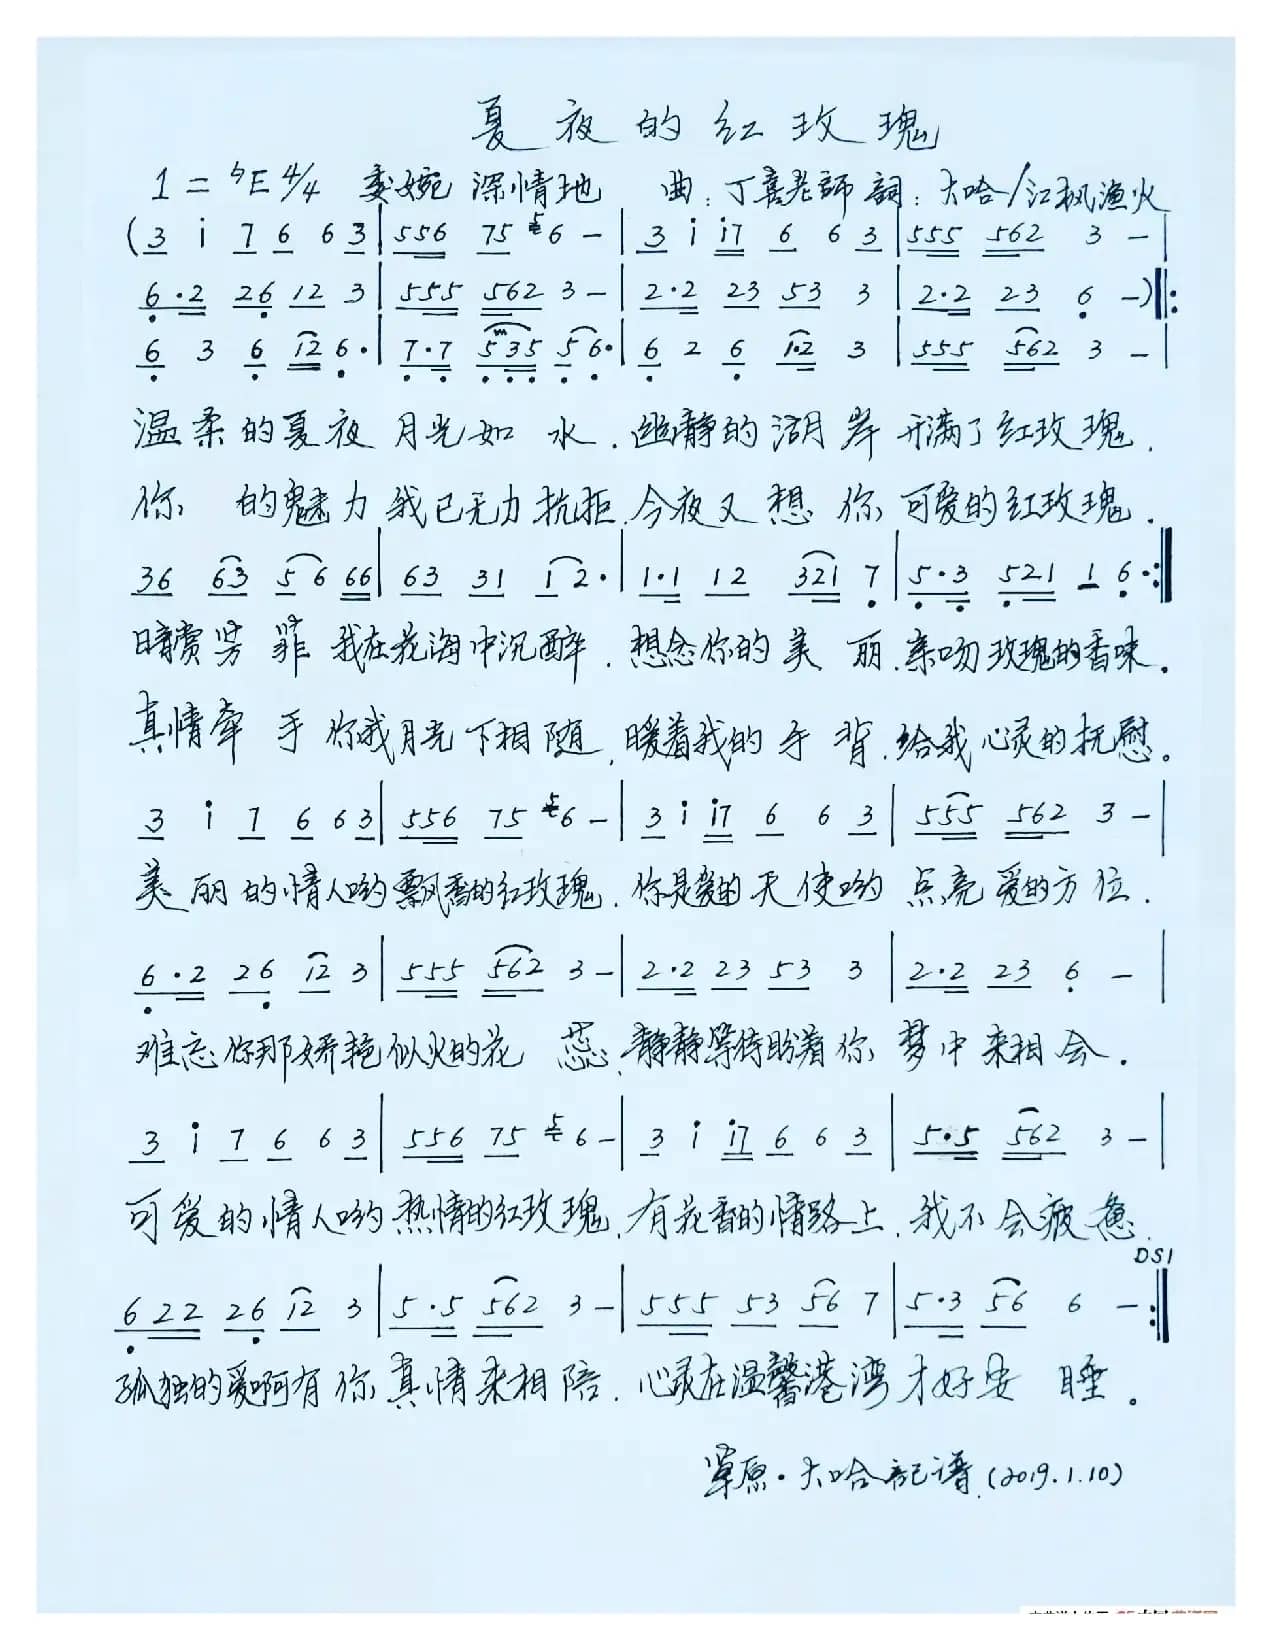 夏夜的红玫瑰
1=♮E 4/4 委婉 深情地 曲:丁喜老師 詞:大哈/江枫渔火
(3 i 7 6 6 3 | 556 75 5 6 - | 3 i i7 6 6 3 | 555 562 3 - |
6·2 26 12 3 | 555 562 3 - | 2·2 23 53 3 | 2·2 23 6 -)‖:
6 3 6 12 6· | 7·7 535 5 6· | 6 2 6 1·2 3 | 555 562 3 - |
温柔的夏夜 月光如 水.幽静的湖岸 开满了红玫瑰.
你 的魅力 我已无力抗拒.今夜又想 你 可爱的红玫瑰.
36 63 5 6 66 | 63 31 1 2· | 1·1 12 321 7 | 5·3 521 1 6·:‖
睛赏芳 菲 我在花海中沉醉.想念你的美 丽.亲吻玫瑰的香味.
真情牵 手 你我月光下相随,暖着我的手 背.给我心灵的抚慰。
3 i 7 6 6 3 | 556 75 5 6 - | 3 i i7 6 6 3 | 555 562 3 - |
美丽的情人哟飘香的红玫瑰.你是爱的天使哟 点亮 爱的方位.
6·2 26 12 3 | 555 562 3 - | 2·2 23 53 3 | 2·2 23 6 - |
难忘你那娇艳似火的花 蕊.静静等待盼着你 梦中来相会.
3 i 7 6 6 3 | 556 75 5 6 - | 3 i i7 6 6 3 | 5·5 562 3 - |
可爱的情人哟 热情的红玫瑰.有花香的情路上.我不会疲惫.
DS1
622 26 12 3 | 5·5 562 3 - | 555 53 56 7 | 5·3 56 6 -:‖
孤独的爱啊有你真情来相陪.心灵在温馨港湾才好安 睡。
草原·大哈記谱.(2019.1.10)